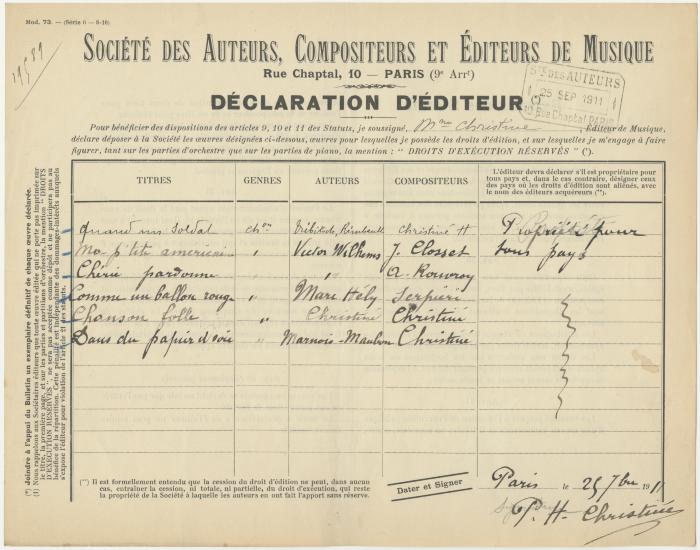 Mod. 73. — (Série 6 - 8-10)
19589
SOCIÉTÉ DES AUTEURS, COMPOSITEURS ET ÉDITEURS DE MUSIQUE
Rue Chaptal, 10 — PARIS (9e Arrt)
DÉCLARATION D'ÉDITEUR
Sté DES AUTEURS
25 SEP 1911
10 Rue Chaptal PARIS
Pour bénéficier des dispositions des articles 9, 10 et 11 des Statuts, je soussigné, Mme Christiné, Éditeur de Musique,
déclare déposer à la Société les œuvres désignées ci-dessous, œuvres pour lesquelles je possède les droits d'édition, et sur lesquelles je m'engage à faire
figurer, tant sur les parties d'orchestre que sur les parties de piano, la mention : “ DROITS D'EXÉCUTION RÉSERVÉS ” (1).
TITRES GENRES AUTEURS COMPOSITEURS
L'éditeur devra déclarer s'il est propriétaire pour
tous pays et, dans le cas contraire, désigner ceux
des pays où les droits d'édition sont aliénés, avec le
nom des éditeurs acquéreurs (**).
Quand un soldat chon christiné H Propriété pour
Ma p'tite " Victor Wilhems J. Closset tous pays
Chérie pardonne " " a.
Comme un ballon rouge " Marc Hély Serpieri
Chanson folle " Christiné Christiné
Dans du papier d'soie " Marnois-Maubon Christiné
(**) Il est formellement entendu que la cession du droit d'édition ne peut, dans aucun
cas, entraîner la cession, ni totale, ni partielle, du droit d'exécution, qui reste
la propriété de la Société à laquelle les auteurs en ont fait l'apport sans réserve.
Dater et Signer
Paris le 25 7bre 1911
P. H. Christiné
(*) Joindre à l'appui du Bulletin un exemplaire définitif de chaque œuvre déclarée.
(1) Nous rappelons aux Sociétaires éditeurs que toute œuvre éditée qui ne porte pas imprimée sur
le titre, la première page, et sur les parties et partitions d'orchestre, la mention “ DROITS
D'EXÉCUTION RÉSERVÉS ”, ne sera pas acceptée comme dépôt et ne participera pas au
bénéfice de la répartition. Cette pénalité est indépendante des dommages-intérêts auxquels
s'expose l'éditeur pour violation de l'article 21 des statuts.